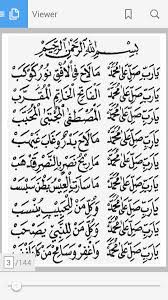 Viewer
بِسْمِ اللهِ الرَّحْمٰنِ الرَّحِيْمِ
يَارَبِّ صَلِّ عَلَى مُحَمَّدْ مَا لَاحَ فِى الْاُفْقِ نُوْرُ كَوْكَبْ
يَارَبِّ صَلِّ عَلَى مُحَمَّدْ الْفَاتِحِ الْخَاتِمِ الْمُقَرَّبْ
يَارَبِّ صَلِّ عَلَى مُحَمَّدْ الْمُصْطَفَى الْمُجْتَبَى الْمُحَبَّبْ
يَارَبِّ صَلِّ عَلَى مُحَمَّدْ مَا لَاحَ بَدْرٌ وَغَابَ غَيْهَبْ
يَارَبِّ صَلِّ عَلَى مُحَمَّدْ مَا رِيْحُ نَصْرٍ بِالنَّصْرِ قَدْ هَبْ
يَارَبِّ صَلِّ عَلَى مُحَمَّدْ مَا سَارَتِ الْعِيْسُ بَطْنَ سَبْسَبْ
يَارَبِّ صَلِّ عَلَى مُحَمَّدْ وَكُلِّ مَنْ لِلْحَبِيْبِ يُنْسَبْ
يَارَبِّ صَلِّ عَلَى مُحَمَّدْ وَكُلِّ مَنْ لِلنَّبِيِّ يَصْحَبْ
يَارَبِّ صَلِّ عَلَى مُحَمَّدْ وَاغْفِرْ وَسَامِحْ مَنْ كَانَ اَذْنَبْ
3 /144